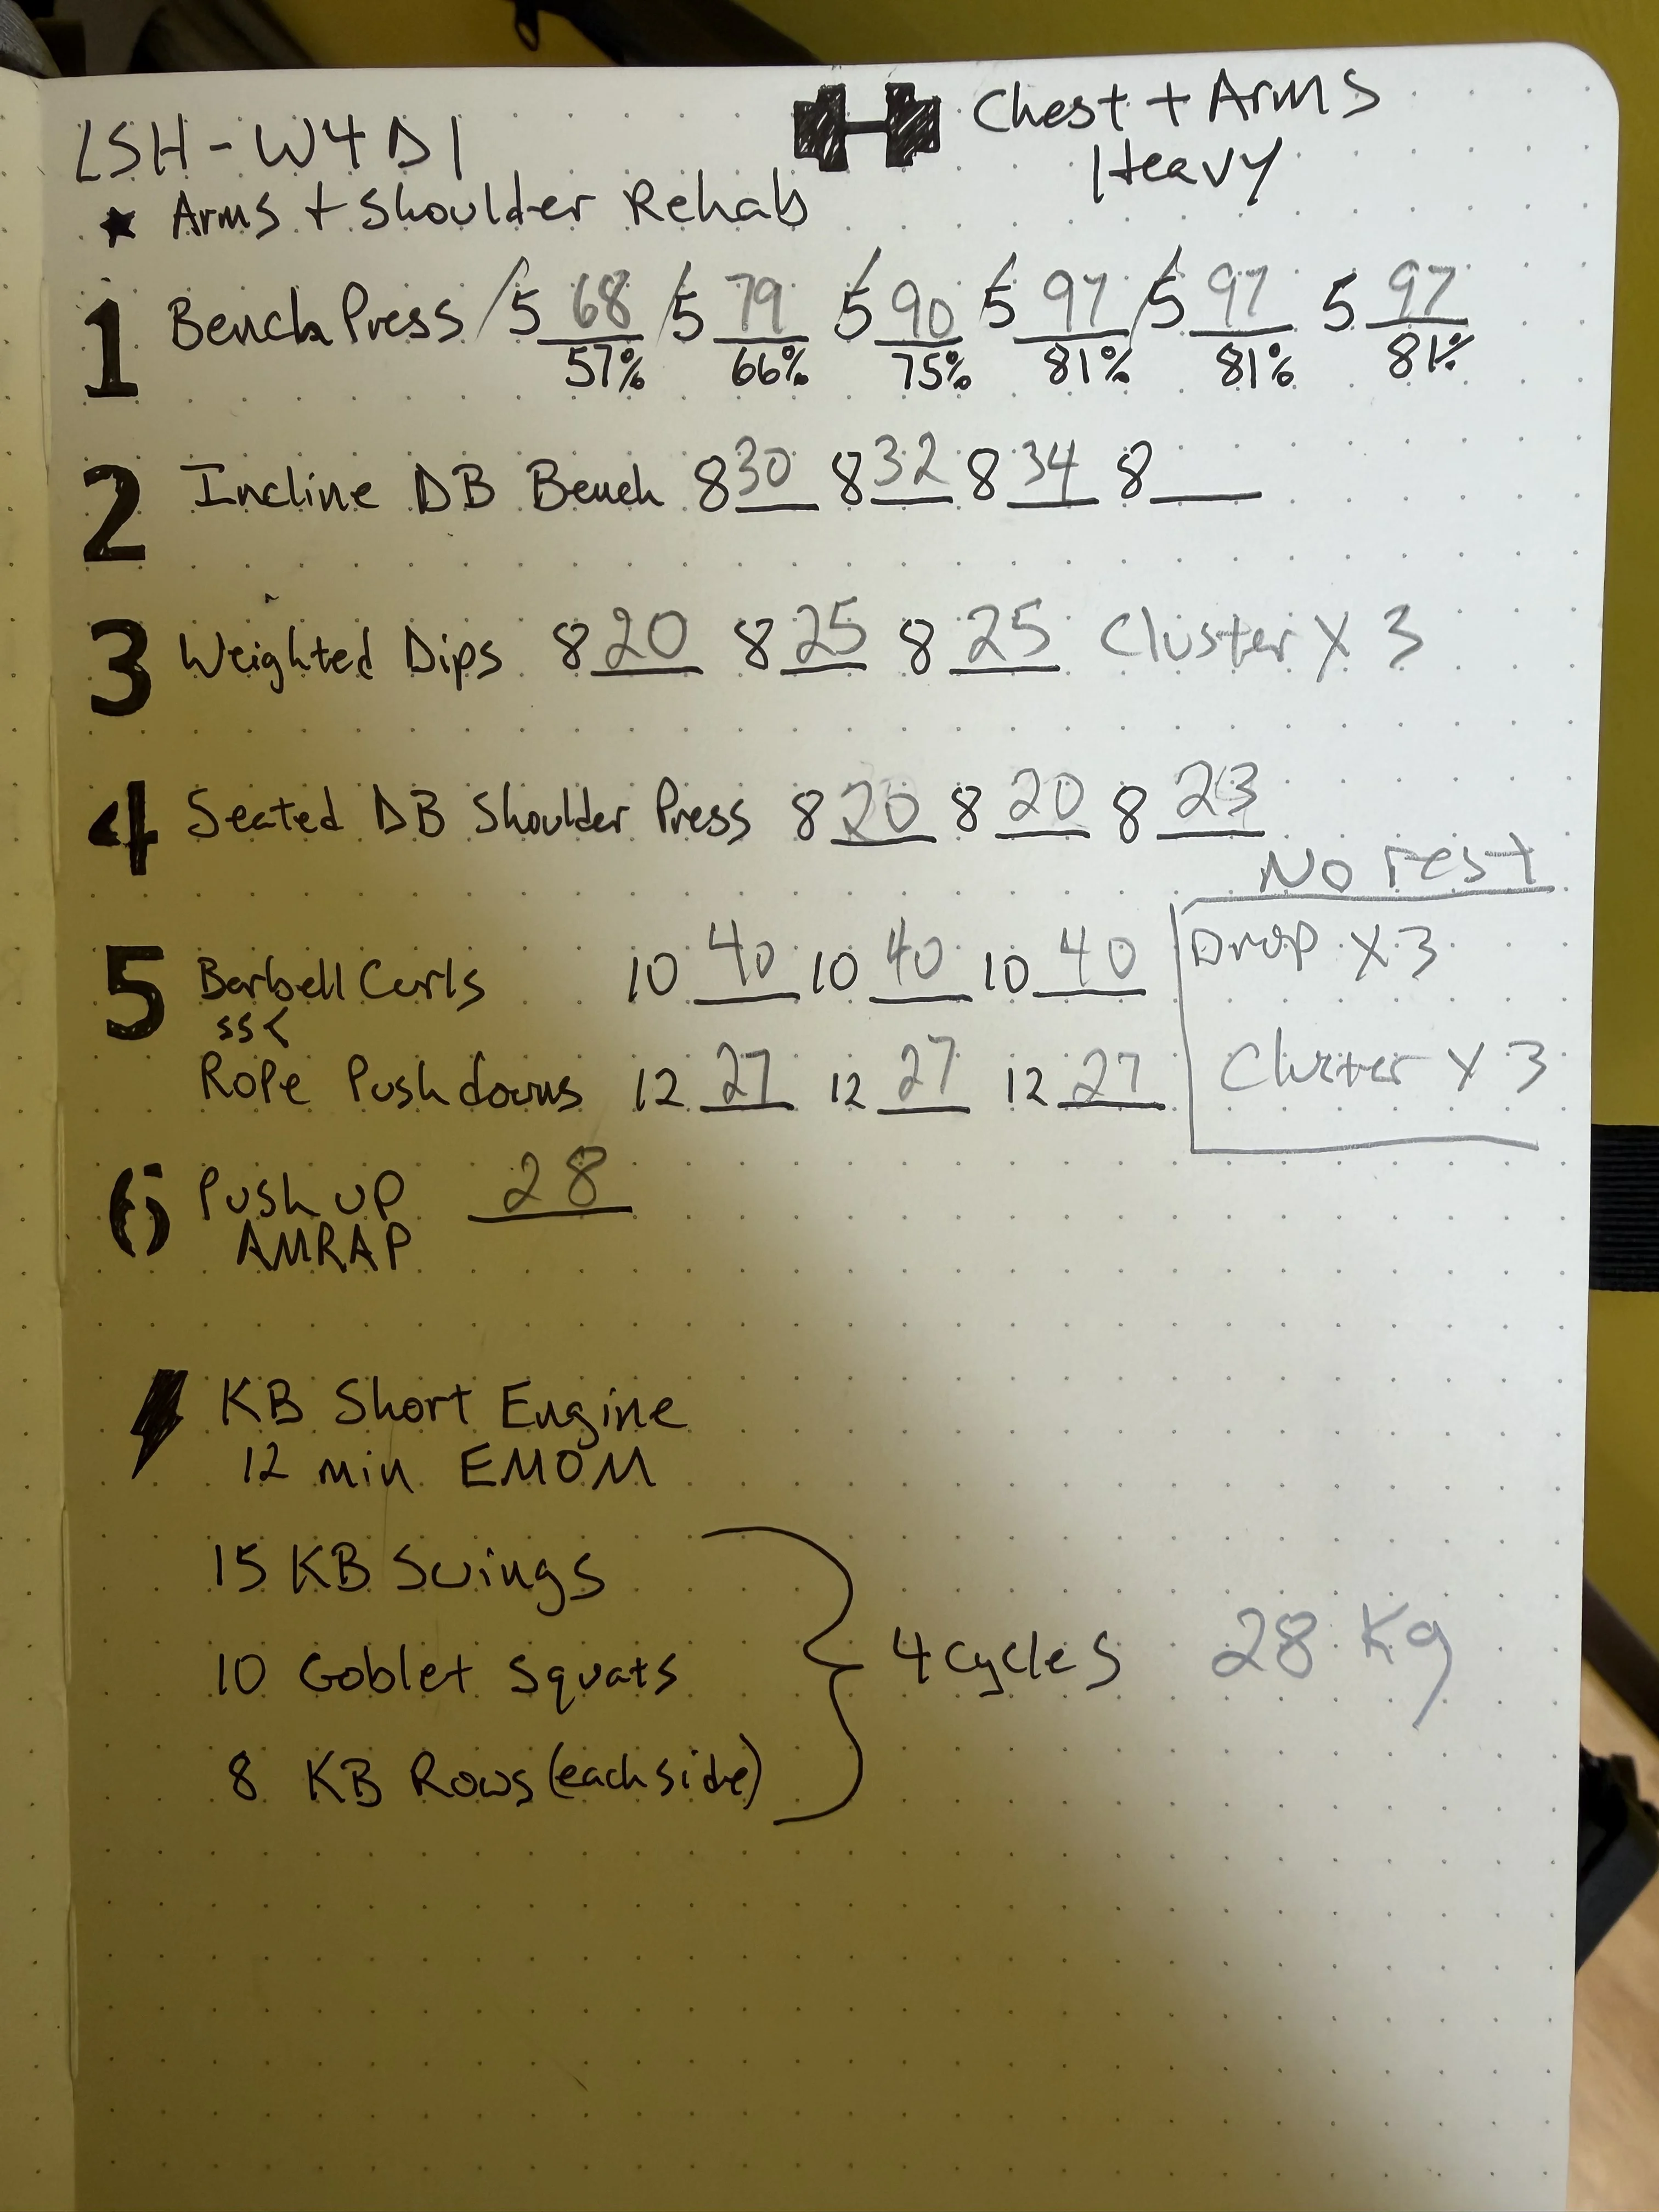 LSH-W4D1
Chest + Arms
Heavy
★ Arms + Shoulder Rehab
1 Bench Press 5 68 5 79 5 90 5 97 5 97 5 97
57% 66% 75% 81% 81% 81%
2 Incline DB Bench 8 30 8 32 8 34 8
3 Weighted Dips 8 20 8 25 8 25 Cluster X 3
4 Seated DB Shoulder Press 8 20 8 20 8 23
No rest
5 Barbell Curls 10 40 10 40 10 40 Drop X 3
SS<
Rope Pushdowns 12 27 12 27 12 27 Cluster X 3
6 Push up 28
AMRAP
KB Short Engine
12 min EMOM
15 KB Swings
10 Goblet Squats 4 cycles 28 Kg
8 KB Rows (each side)